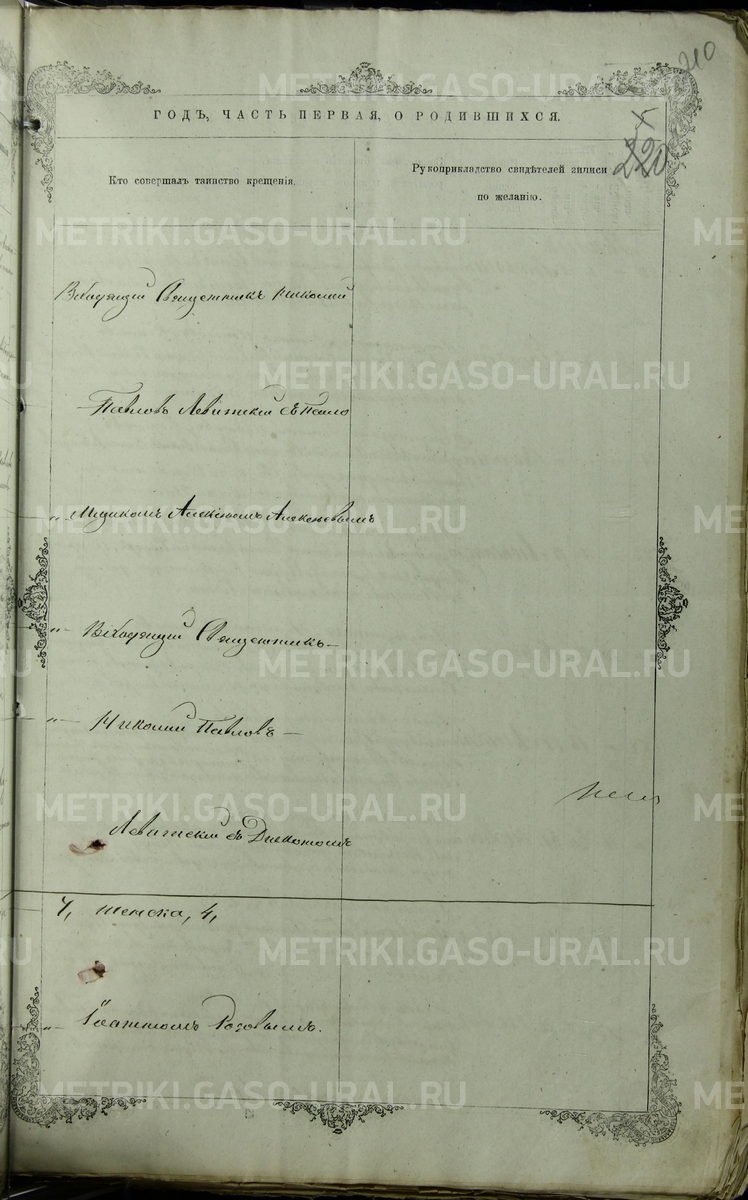 210
ГОДЪ, ЧАСТЬ ПЕРВАЯ, О РОДИВШИХСЯ.
220
Кто совершалъ таинство крещенія.
Рукоприкладство свидѣтелей записи
по желанію.
Священникъ Николай
Павловъ Левитскій съ Псало
мщикомъ Алексѣемъ Алексѣевымъ
Священникъ
Николай Павловъ
Левитскій съ Діакономъ
женска, 4,
Іоанномъ Розовымъ.
METRIKI.GASO-URAL.RU